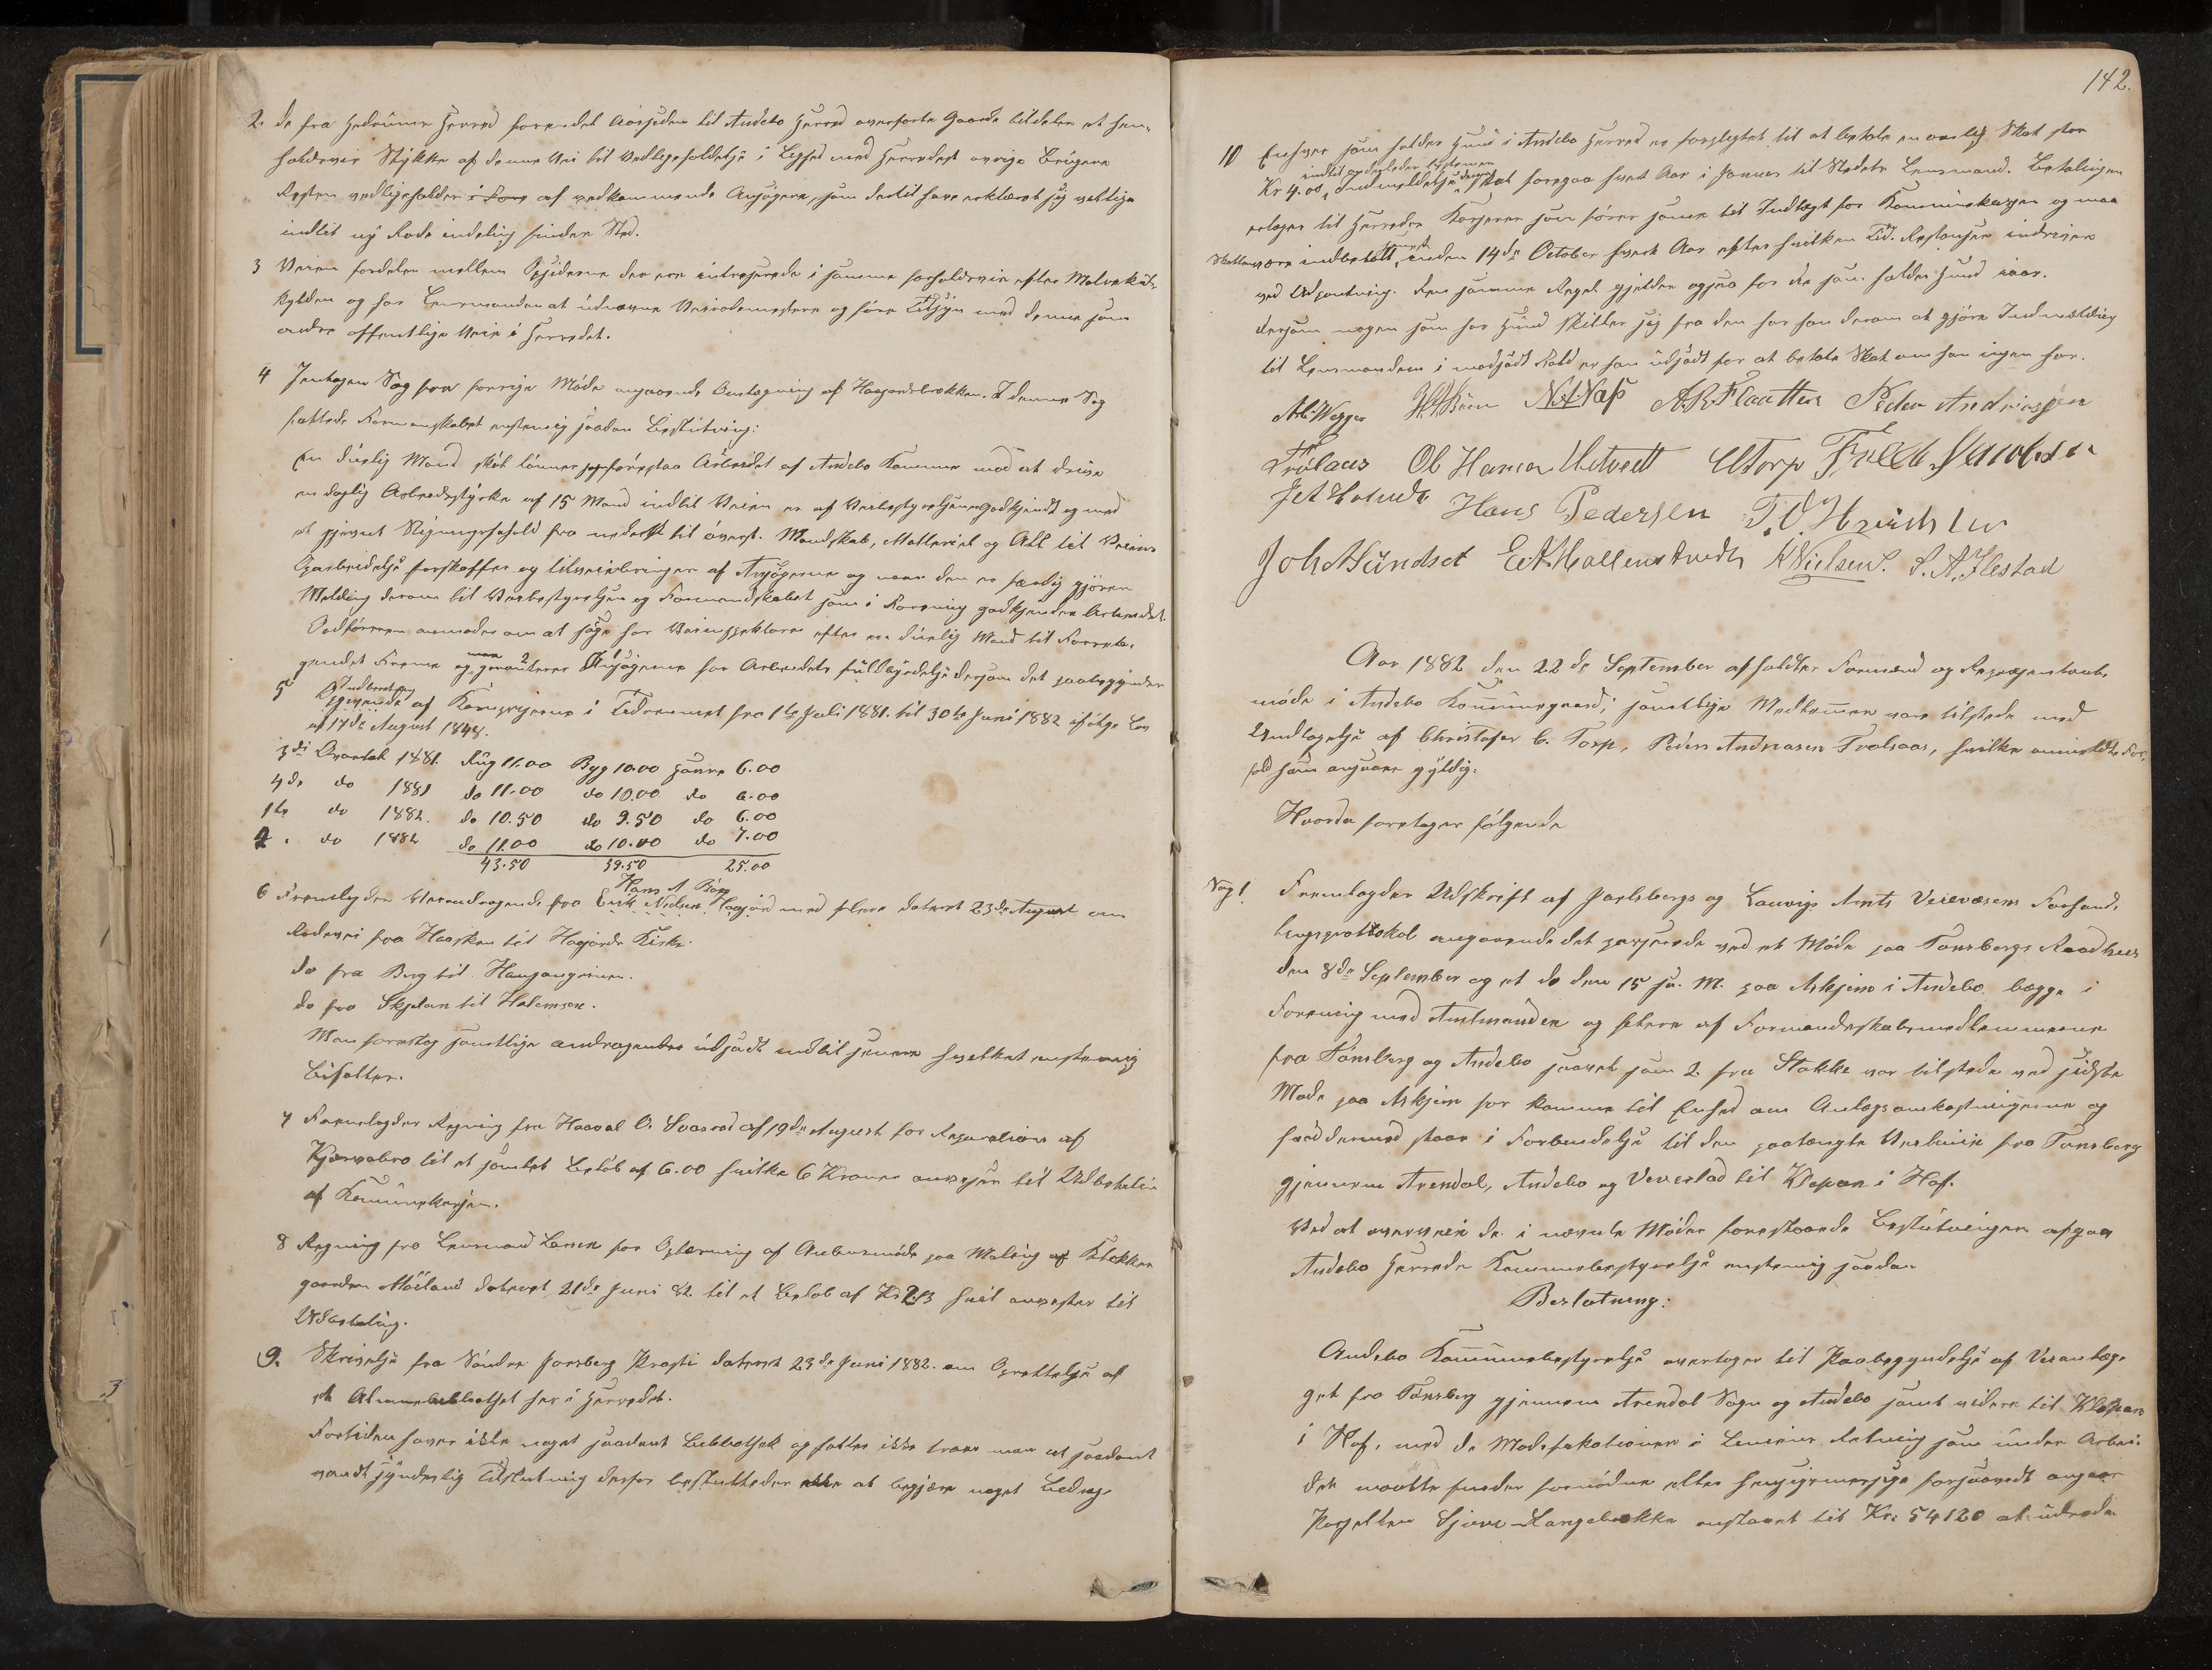 2. de fra Hedrums Herred forendel Aar siden til Andebo Herred overførte Gaarde tildeles et hen-
holdsvis Stykke af denne Vei til Vedligeholdelse i Lighed med Herredets øvrige Brugere
Resten vedligeholdes af vedkommende Ansøgere, som dertil have erklæret sig villige
indtil ny Rode inddeling finder Sted.
3 Veien fordeles mellem Opsidderne der ere interesserede i samme forholdsvis efter Matrikul-
skylden og har Lensmanden at udnævne Veirodemestere og føre Tilsyn med denne som
andre offentlige Veie i Herredet.
4 Inntagen Sag fra forrige Møde angaaende Omlægning af Haugardsbakken. I denne Sag
fattede Formandskabet enstemig saadan Beslutning:
En duelig Mand skal lønnes forestaa Arbeidet af Andebo Kommune med at drive
en daglig Arbeidsstyrke af 15 Mand indtil Veien er af Veibestyrelsen godkjendt og med
et jevnt Stigningsforhold fra nederst til øverst. Mandskab, Matteriel og Alt til Veiens
Oparbeidelse forskaffes og tilveiebringes af Ansøgerne og naar den er færdig gjøres
Melding derom til Veibestyrelsen og Formandskabet som i Forening godkjender Arbeidet.
Ordføreren anmodes om at søge hos Veiinspektøren efter en duelig Mand til Foreta-
gendets Fremme og man garanterer Ansøgerne for Arbeidets fuldbyrdelse dersom det paabegyndes
5 Indberetning
Opgivende af Kornpriserne i Tidrummet fra 1ste Juli 1881. til 30te Juni 1882 ifølge Lov
af 17de August 1848.
3die Qvartal 1881. Rug 11.00 Byg 10.00 Havre 6.00
4de do 1881 do 11.00 do 10.00 do 6.00
1ste do 1882. do 10.50 do 9.50 do 6.00
2. do 1882 do 11.00 do 10.00 do 7.00
43.50 39.50 25.00
Hans A Berg
6 Fremlagdes Veiandragende fra Erik Nielsen med flere dateret 23de August om
Rodevei fra Haasken til Høijords Kirke.
do fra Berg til Haugangrinen.
do fra Skjelan til Halemsen.
Man foreslog samtlige andragender udsadt indtil senere hvilket enstemig
bifaltes.
7 Fremlagdes Regning fra Haaval O. Svarød af 19de August for Reparation af
Kjærnebro til et samlet Beløb af 6.00 hvilke 6 Kroner anvises til Udbetaling
af Kommunekassen.
8 Regning fra Lensmand Larsen for Oplæsning af Anbusmøde paa Maling af Klokker
gaarden Møiland dateret 21de Juni 82. til et Beløb af Kr 2.13 hvil anvistes til
Udbetaling.
9. Skrivelse fra Søndre Jarlsberg Prosti dateret 23de Juni 1882. om Oprettelse af
et Almuebibliothek her i Herredet.
Fortiden haves ikke noget saadant Bibliothek og heller ikke troes man at saadant
vandt synderlig Tilslutning derfor besluttedes ikke at begjære noget Bidrag.
142.
10 Enhver som holder Hund i Andebo Herred er forpligtet til at betale en aarlig Skat stor
indtil anderledes bestemmes
Kr 4.00, Indmeldelse derom skal foregaa hvert Aar i Januar til Stedets Lensmand. Betalingen
erlægges til Herredes Kasserer som fører samme til Indtægt for Kommunekassen og maa
Skatten være indbetalt inden 14de October hvert Aar efter hvilken Tid Restansen inddrives
ved Udpantning. Den samme Regel gjelder ogsaa for de som holder Hund iaar.
dersom nogen som har Hund skiller sig fra den har han derom at gjøre Indmelding
til Lensmanden i modsadt Fald er han udsadt for at betale Skat om han ingen har.
Ab. Wegger H Ø Bøen N. A. Næs A. R. Flaatten Peder Andreassen
Trolaas Ol Hansen Uetvedt C Torp Fredr. Jacobsen
J A Holand Hans Pedersen T. O. Henrichsen
Joh A Sundset E. A. Mollenstvedt K Nielsen. S. A. Ilestad
Aar 1882 den 22de September afholdtes Formænd og Repræsentant-
møde i Andebo Kommunegaard; samtlige Medlemmer vare tilstede med
Undtagelse af Christofer C. Torp, Peder Andreasen Trolsaas, hvilke anmeldte For-
fald som ansaaes gyldig.
Hvorda foretoges følgende
Sag 1. Fremlagdes Udskrift af Jarlsbergs og Laurvigs Amts Veievæsens Forhand-
lingsprottokol angaaende det passerede ved et Møde paa Tønsbergs Raadhus
den 8de September og et do den 15 ds. M. paa Askjem i Andebo begge i
Forening med Amtmanden og flere af Formandskabsmedlemmerne
fra Tønsberg og Andebo saavel som 2. fra Stokke var tilstede ved sidste
Møde paa Askjem for komme til Enhed om Anlægsomkostningerne og
hvad dermed staar i Forbindelse til den paatænkte Veilinie fra Tønsberg
gjennem Arendal, Andebo og Veverstad til Klopan i Hof.
Ved at overveie de i nævnte Møder forestaaende Beslutninger afgav
Andebo Herreds Kommunebestyrelse enstemig saadan
Beslutning:
Andebo Kommunebestyrelse overtager til Paabegyndelse af Veianlæg-
get fra Tønsberg gjennem Arendal Sogn og Andebo samt videre til Klopan
i Hof, med de Modifikationer i Liniens Retning som under Arbei-
det maatte findes fornødne eller hensigtsmæssige forsaavidt angaar
Parsellen Gjæve-Langebrekke anslaaet til Kr: 54120 at udrede